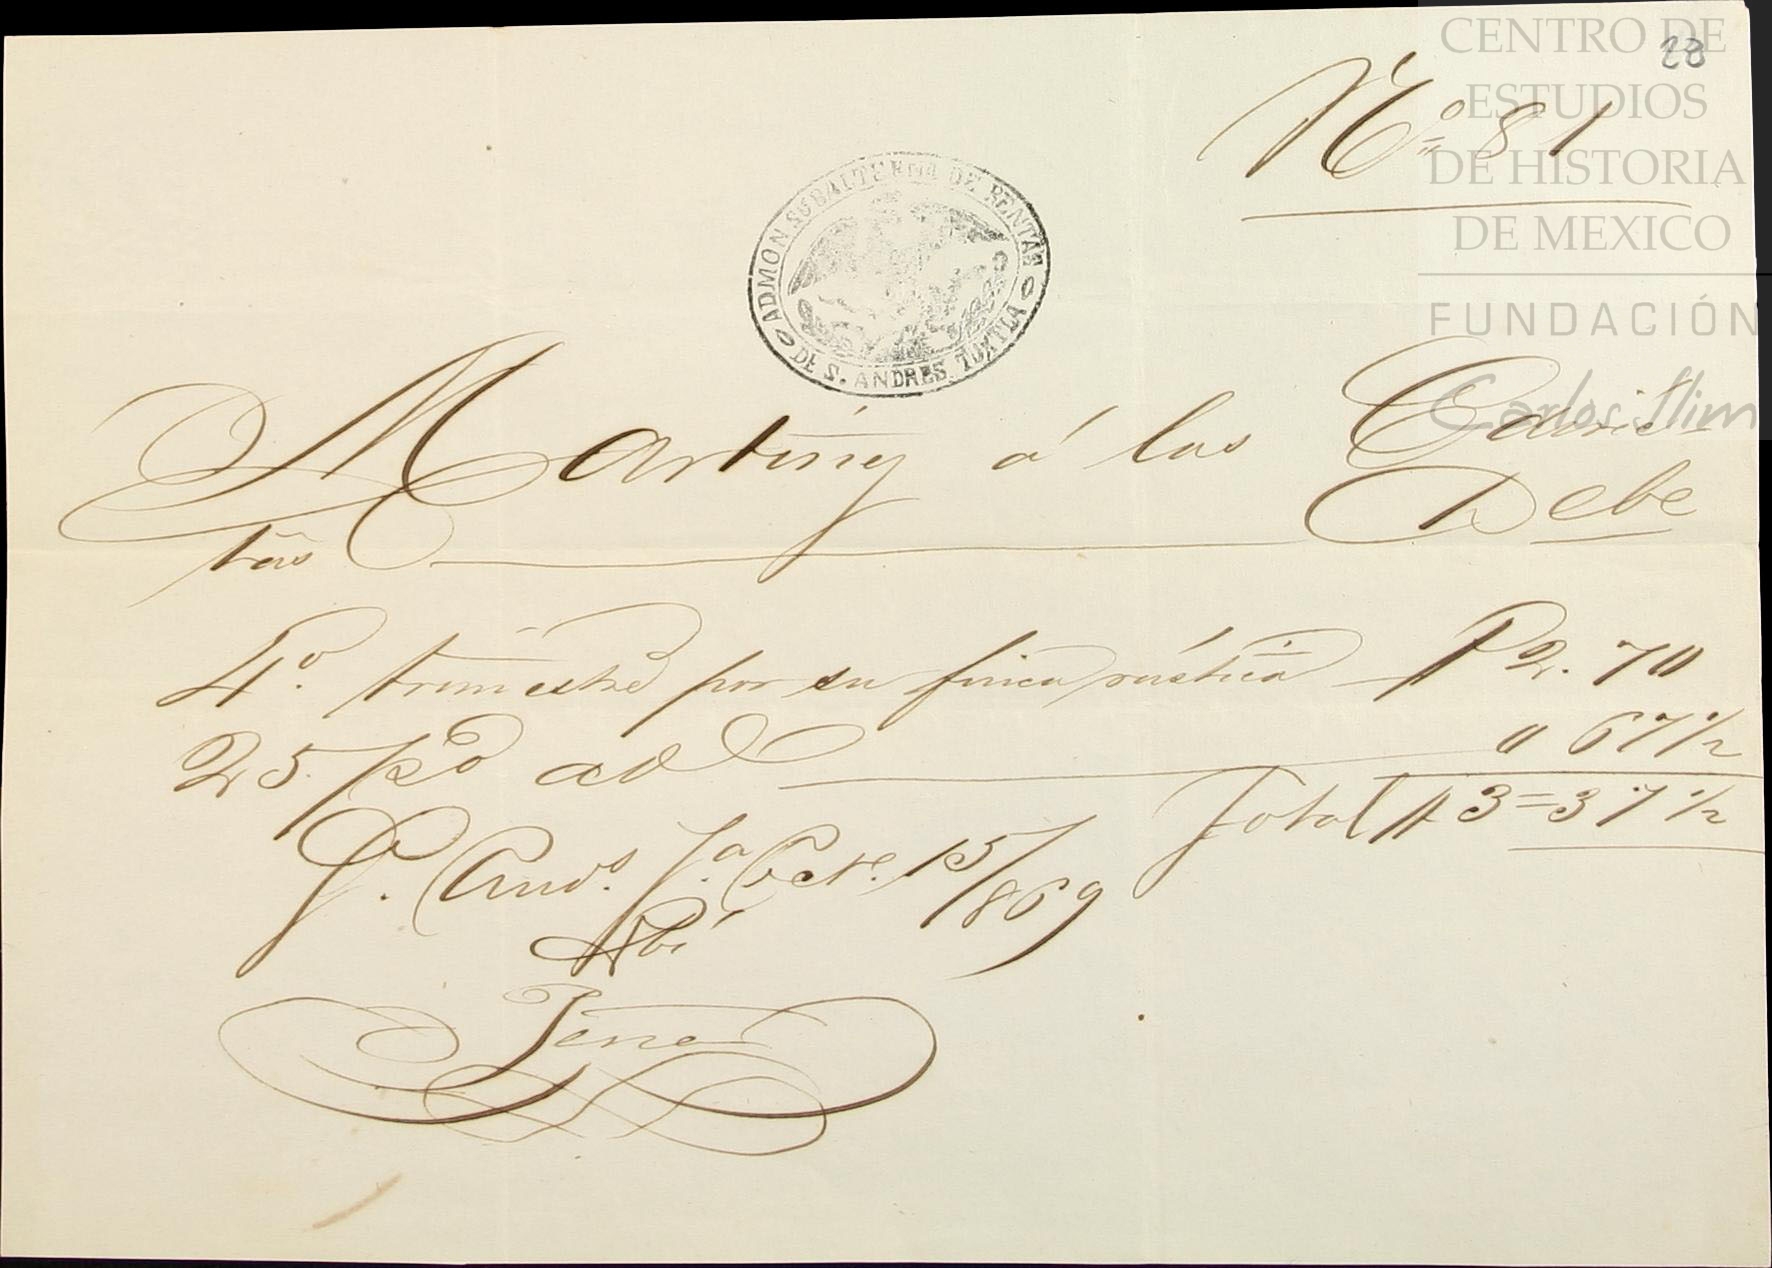 28
Nº 81
CENTRO DE
ESTUDIOS
DE HISTORIA
DE MEXICO
FUNDACIÓN
Carlos Slim
ADMON SUBALTERNA DE RENTAS
DE S. ANDRES TUXTLA
á las
Debe
4º trimestre por su finca rústica P 2. 70
25 p% ad " 67 1/2
Total P 3=37 1/2
S. Ands. Ta. Octe. 15/869
Rbí